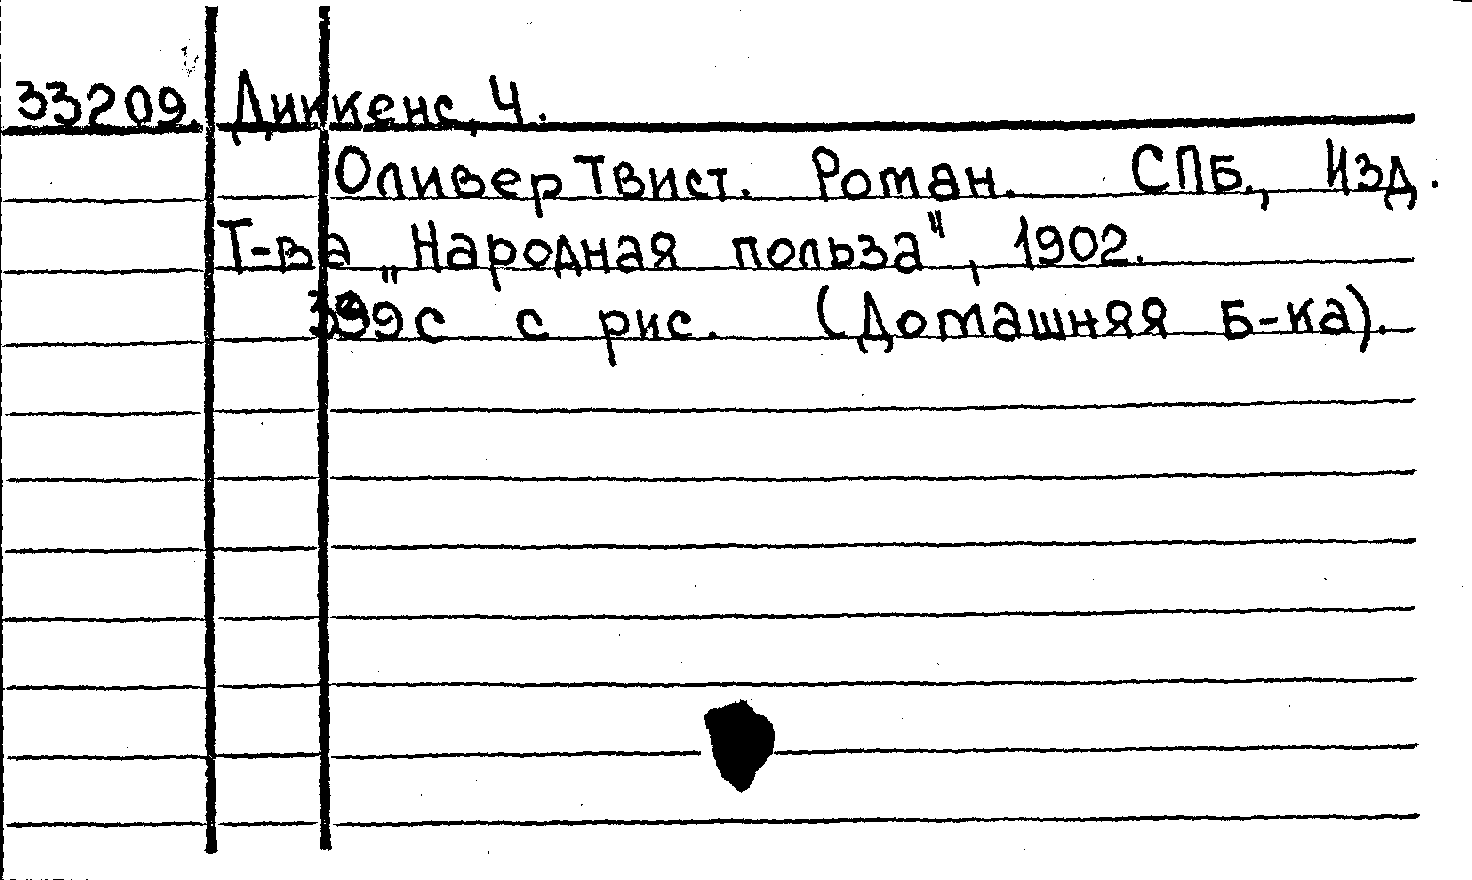 33209. Диккенс, Ч.
Оливер Твист. Роман. СПБ., Изд.
Т-ва „Народная польза", 1902.
399с с рис. (Домашняя Б-ка).